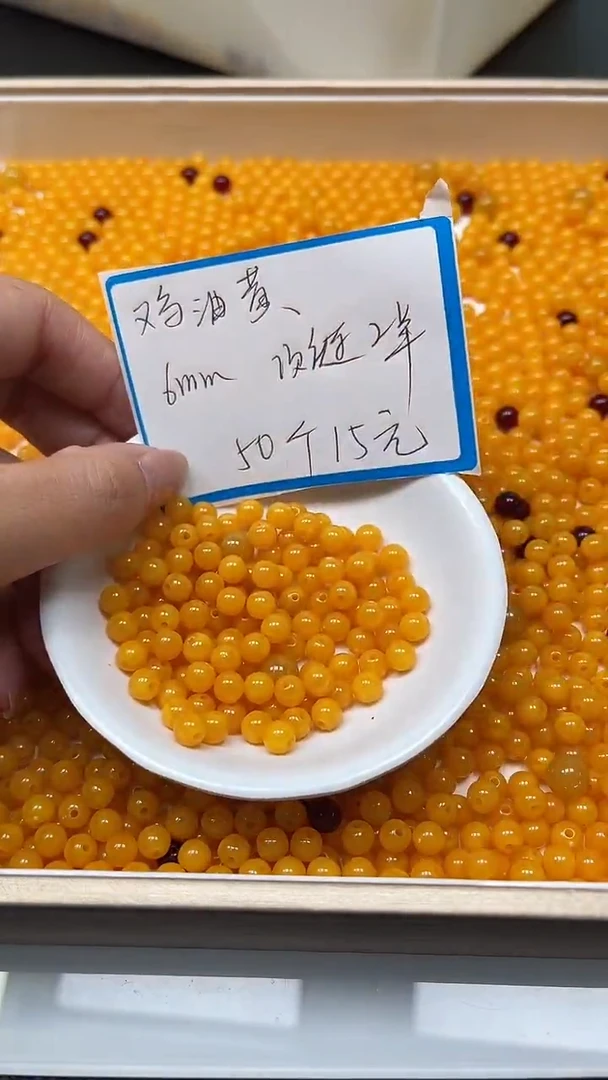 鸡油黄
6mm 顶链2半
50个15元